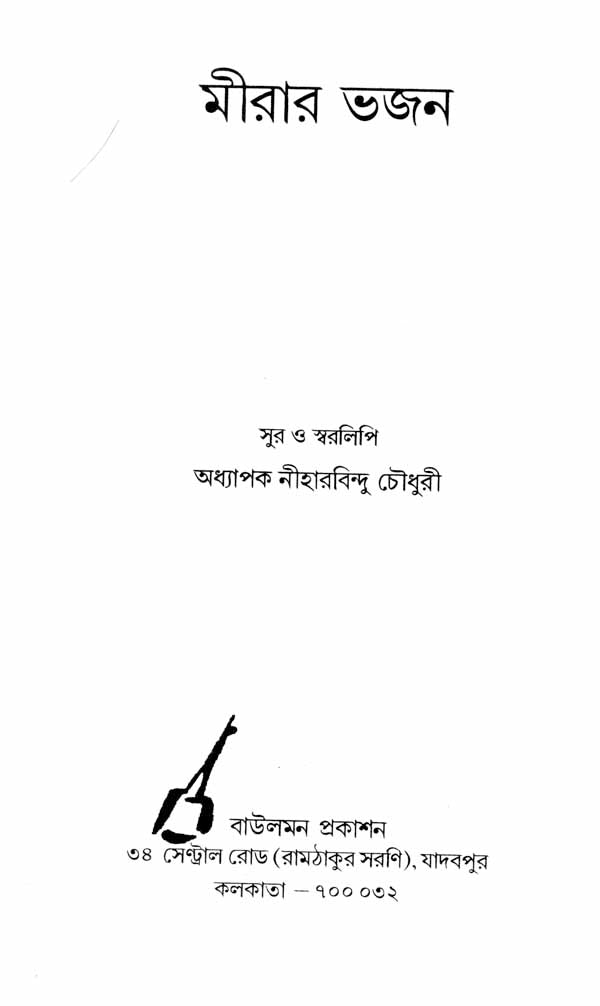 মীরার ভজন
সুর ও স্বরলিপি
অধ্যাপক নীহারবিন্দু চৌধুরী
বাউলমন প্রকাশন
৩৪ সেন্ট্রাল রোড (রামঠাকুর সরণি), যাদবপুর
কলকাতা – ৭০০ ০৩২